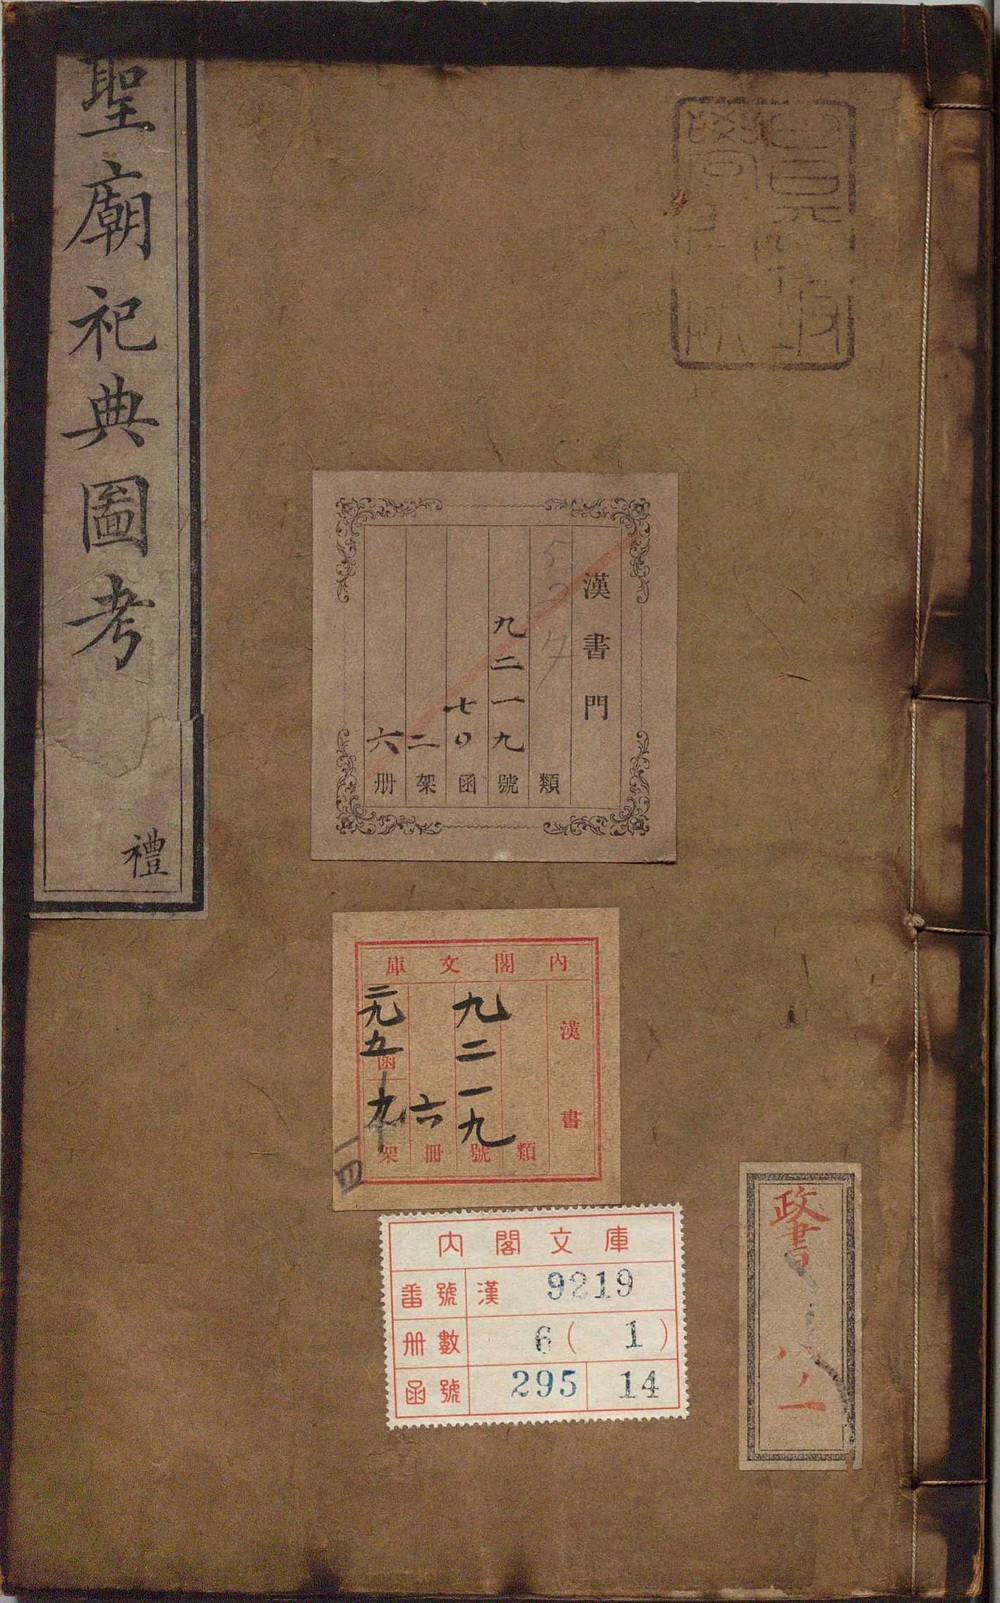 聖廟祀典圖考
禮
漢書門
類
九二一九號
七〇函
二架
六册
內閣文庫
漢書
類
九二一九號
六冊
二九五函
架
一四
內閣文庫
番號 漢 9219
冊數 6(1)
函號 295 14
政書
八ノ一